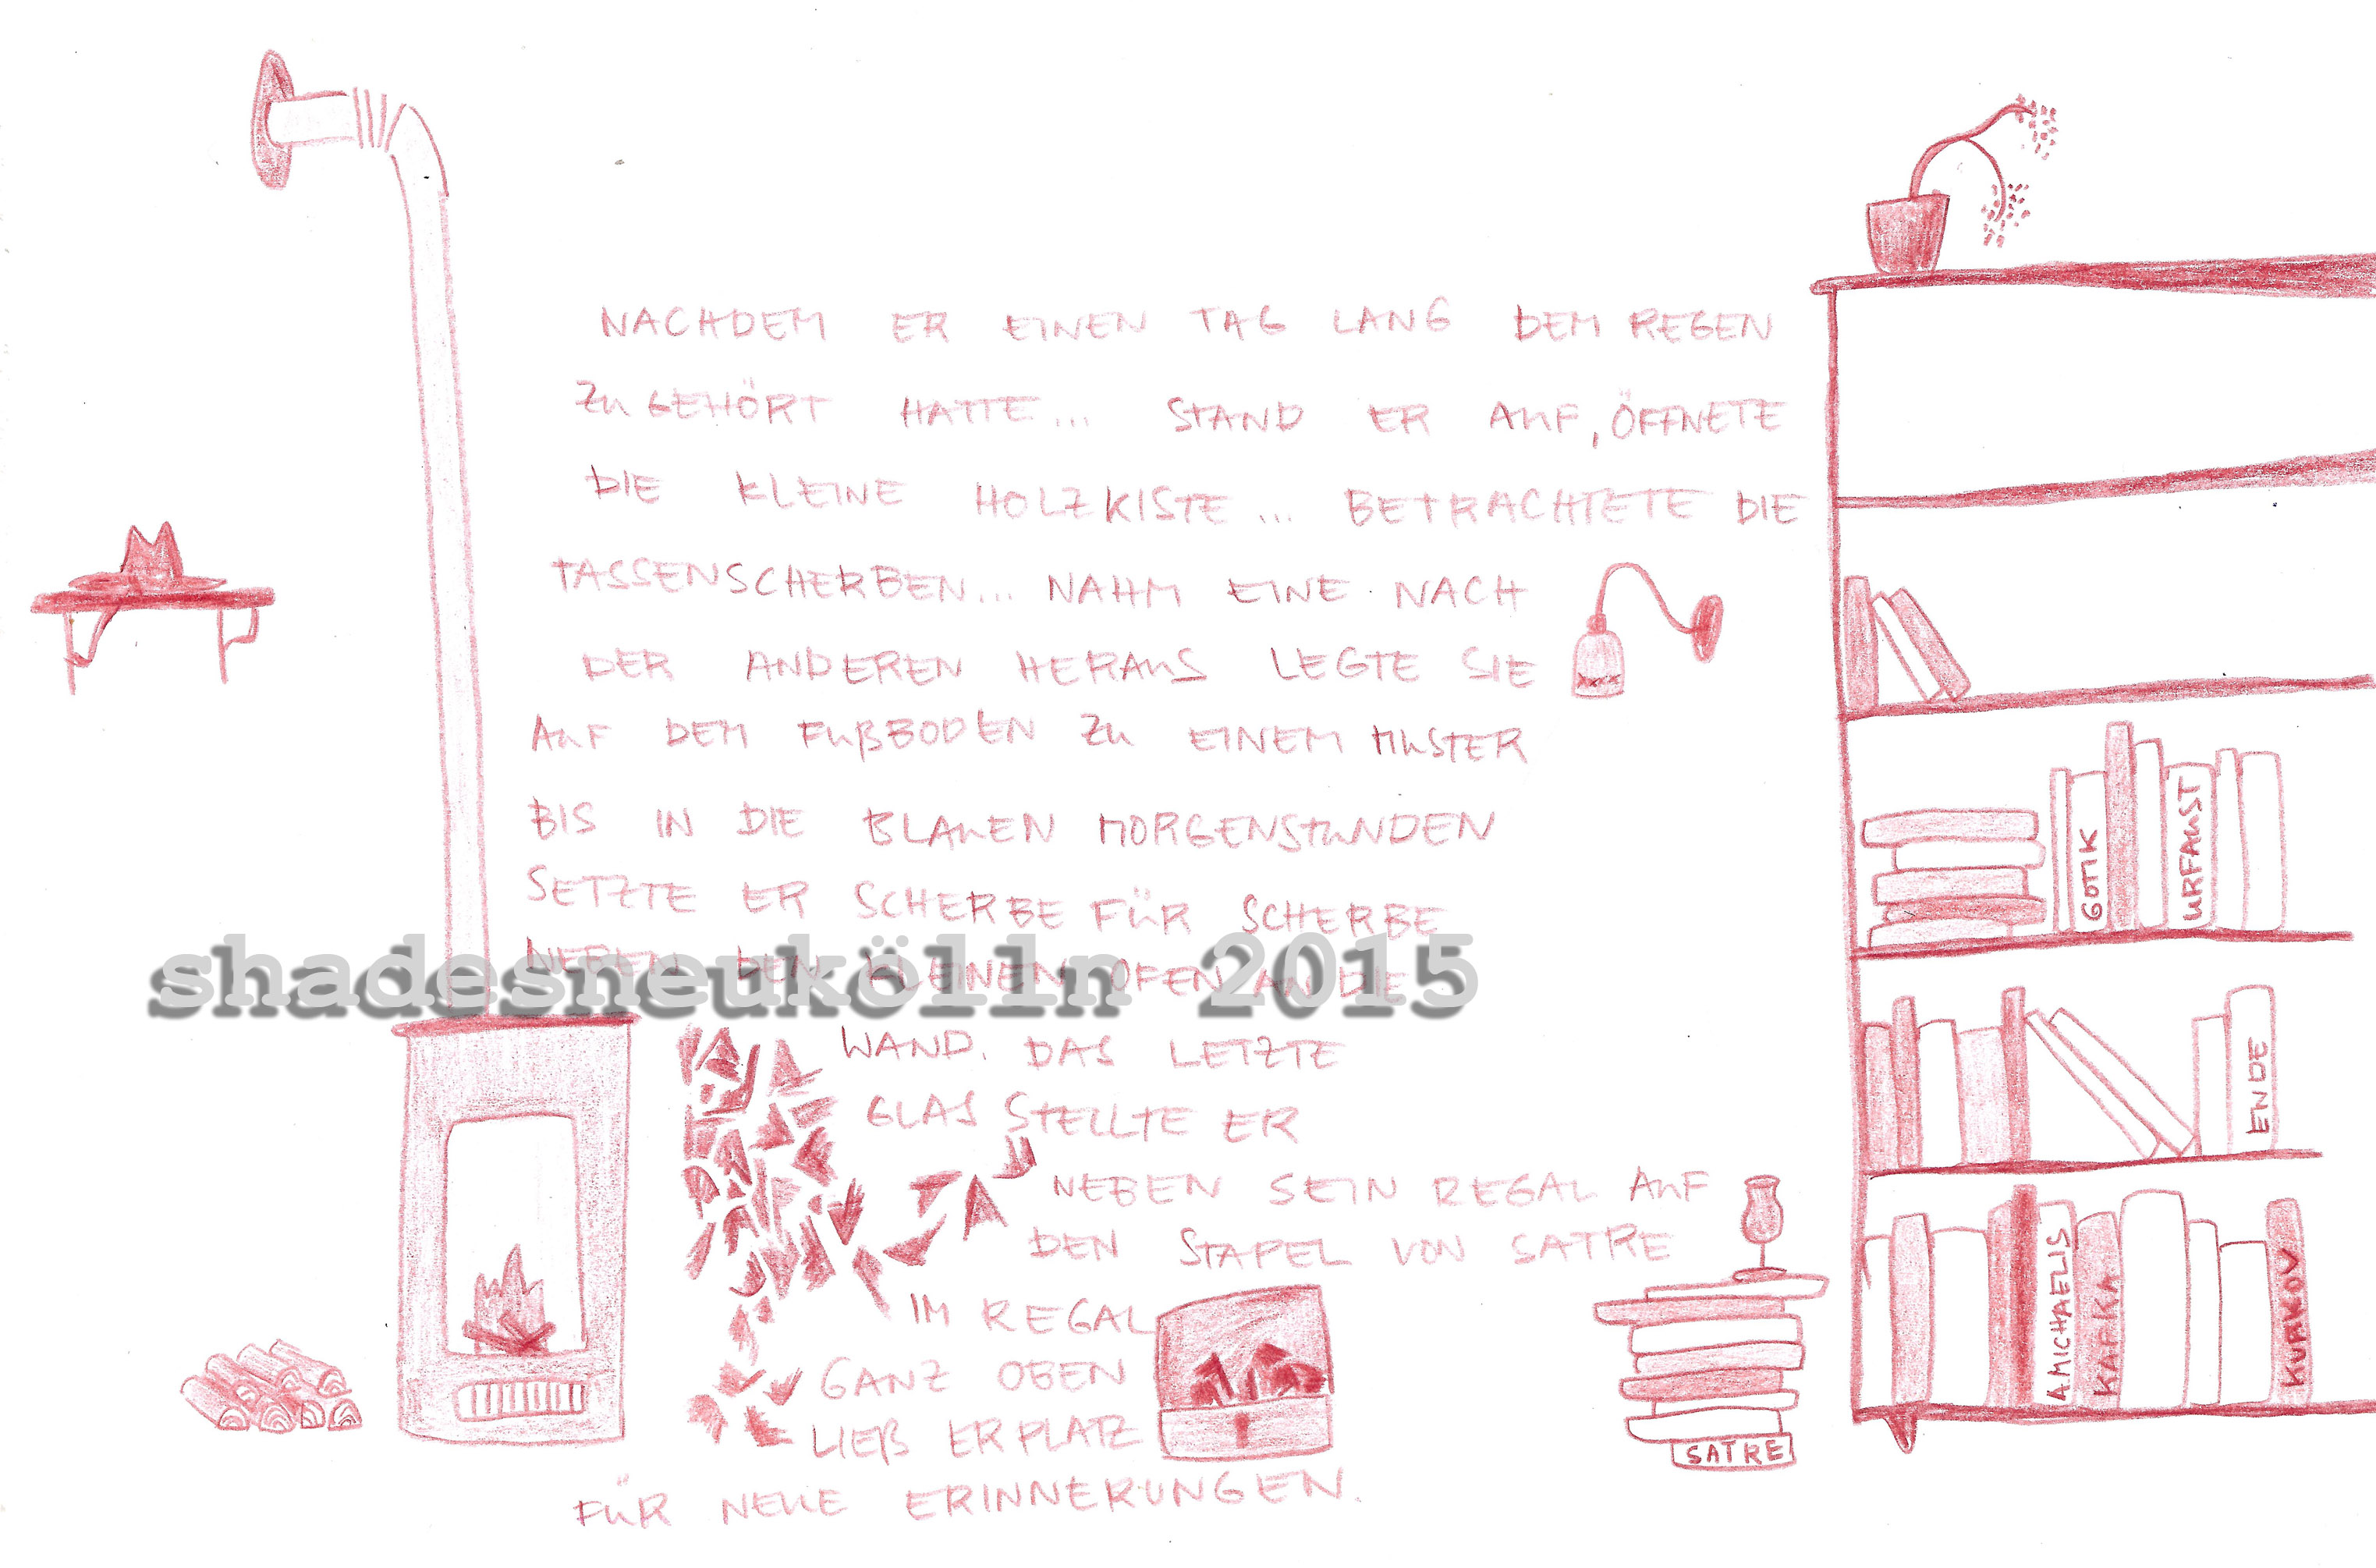 NACHDEM ER EINEN TAG LANG DEM REGEN
ZUGEHÖRT HATTE... STAND ER AUF, ÖFFNETE
DIE KLEINE HOLZKISTE... BETRACHTETE DIE
TASSENSCHERBEN... NAHM EINE NACH
DER ANDEREN HERAUS LEGTE SIE
AUF DEM FUßBODEN ZU EINEM MUSTER
BIS IN DIE BLAUEN MORGENSTUNDEN
SETZTE ER SCHERBE FÜR SCHERBE
NEBEN DEN KLEINEN OFEN AN DIE
WAND. DAS LETZTE
GLAS STELLTE ER
NEBEN SEIN REGAL AUF
DEN STAPEL VON SATRE
IM REGAL
GANZ OBEN
LIEß ER PLATZ
FÜR NEUE ERINNERUNGEN.
shadesneukölln 2015
XXXX
GOTIK
URFAUST
ENDE
A.MICHAELIS
KAFKA
KURKOV
SATRE